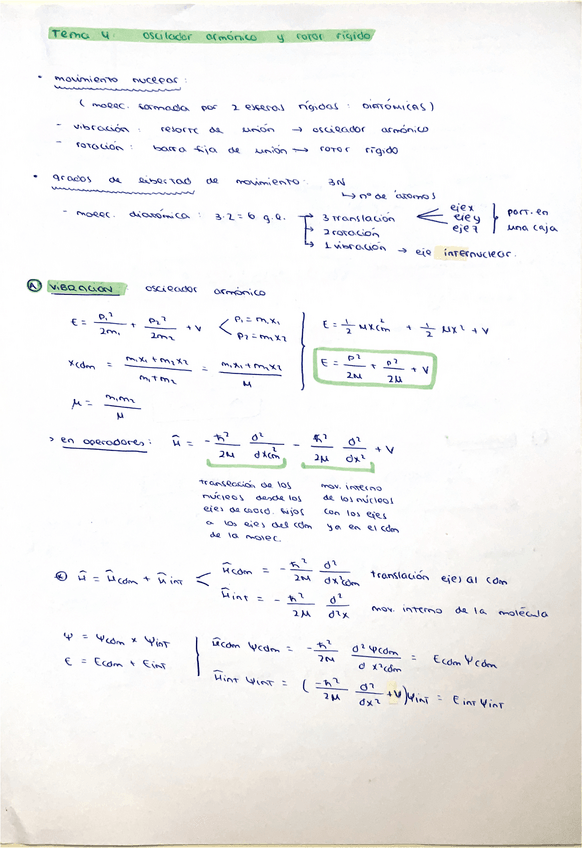 Tema 4: oscilador armónico y rotor rígido
• movimiento nuclear:
( molec. formada por 2 esferas rígidas: DIATÓMICAS )
- vibración: resorte de unión → oscilador armónico
- rotación: barra fija de unión → rotor rígido
• grados de libertad de movimiento: 3N
↳ nº de átomos
- molec. diatómica: 3·2 = 6 g.l. → 3 translación eje x eje y eje z } part. en una caja
↳ 2 rotación
↳ 1 vibración → eje internuclear.
A VIBRACIÓN: oscilador armónico
E = p₁²/2m₁ + p₂²/2m₂ + V < p₁ = m₁x₁ p₂ = m₁x₂
E = 1/2 Mẋ²cm + 1/2 μẋ² + V
xcdm = m₁x₁ + m₂x₂ / m₁+m₂ = m₁x₁ + m₂x₂ / M
E = p²/2M + p²/2μ + V
μ = m₁m₂/M
> en operadores: Ĥ = -ħ²/2M d²/dx²cm - ħ²/2μ d²/dx² + V
translación de los núcleos desde los ejes de coord. fijos a los ejes del cdm de la molec.
mov. interno de los núcleos con los ejes ya en el cdm
Ĥ = Ĥcdm + Ĥint < Ĥcdm = -ħ²/2M d²/dx²cdm translación ejes al cdm
Ĥint = -ħ²/2μ d²/d²x mov. interno de la molécula
Ψ = Ψcdm × Ψint
E = Ecdm + Eint
Ĥcdm Ψcdm = -ħ²/2M d²Ψcdm/d x²cdm = Ecdm Ψcdm
Ĥint Ψint = (-ħ²/2μ d²/dx² + V)Ψint = Eint Ψint